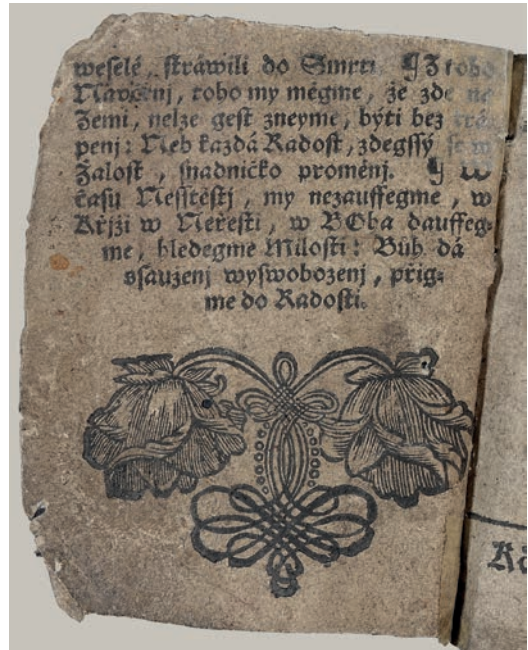 weselé, sträwili do Smrti. ¶ Z toho
Navčenj, toho my mëgme, že zde na
Zemi, nelze gest zneyme, býti bez trá-
penj: Neb každá Radost, zdegssý se w
Žalost, snadničko proměnj. ¶ W
času Nesstěstj, my nezauffegme, w
Křjži w Neřesti, w BOha dauffeg-
me, hledegme Milosti: Bůh dá
ssauženj wyswobozenj, přig-
me do Radosti.